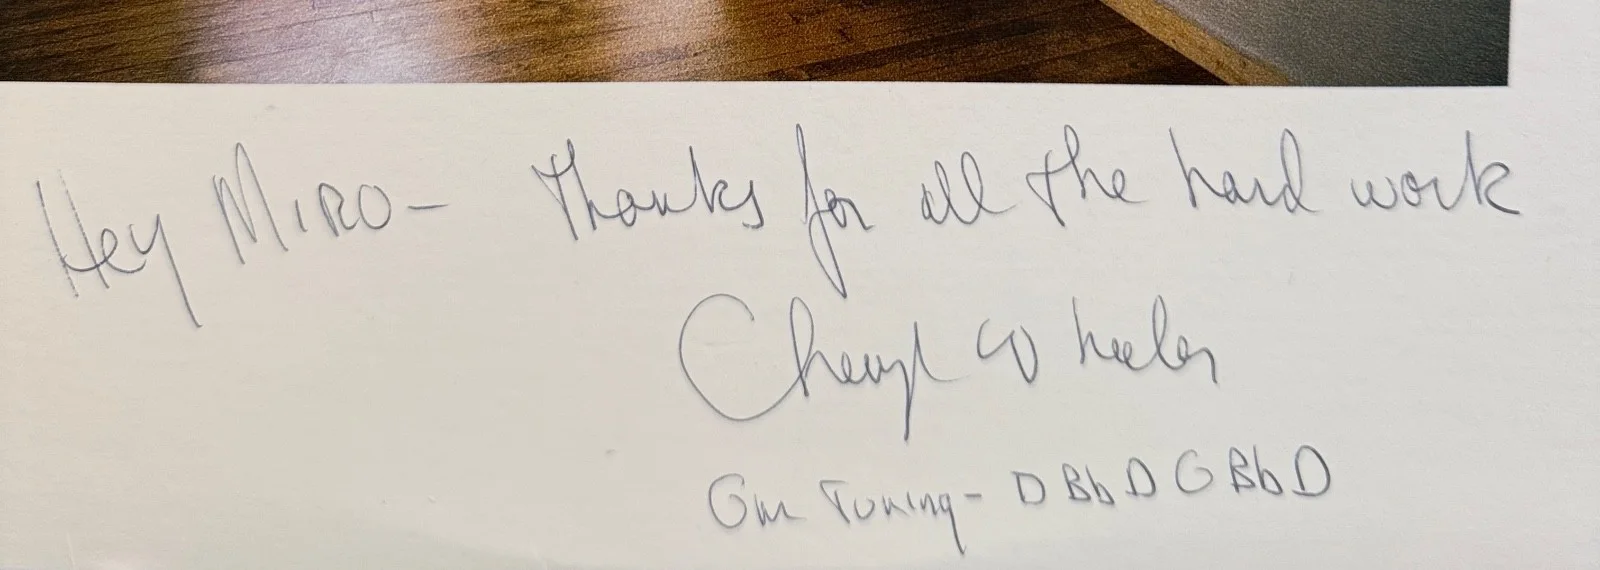 Hey MIRO- Thanks for all the hard work
Cheryl Wheeler
Gm Tuning- D Bb D G Bb D